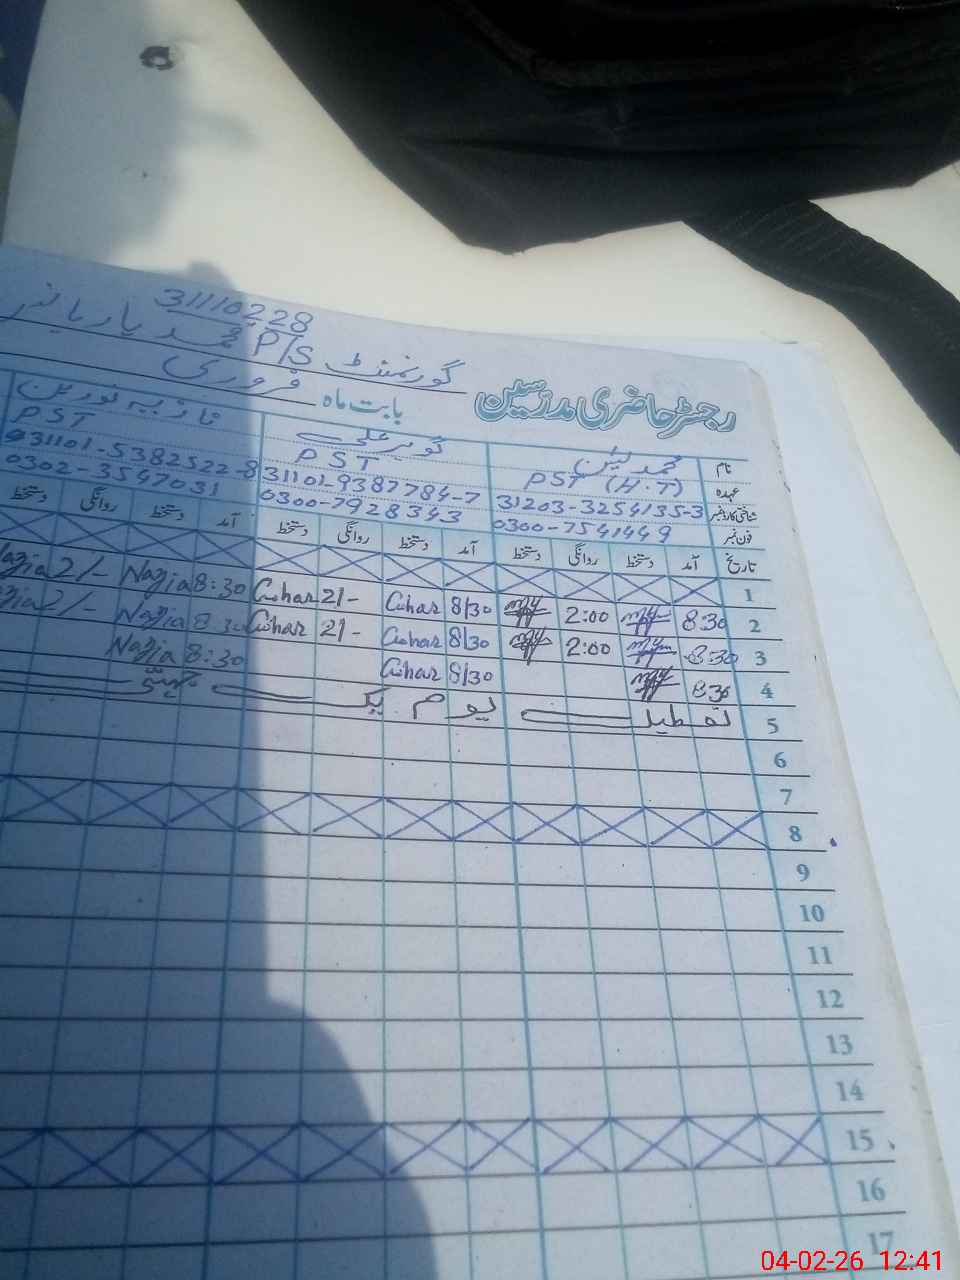 31110228
گورنمنٹ P/S محمد یار
رجسٹر حاضری مدرسین بابت ماہ فروری
نام محمد گوہر علی نازیہ نورین
عہدہ PST (H.T) PST PST
شناختی کارڈ نمبر 31203-3254135-3 31101-9387784-7 31101-5382522-8
فون نمبر 0300-7541449 0300-7928343 0302-3547031
تاریخ آمد دستخط روانگی دستخط آمد دستخط روانگی دستخط آمد دستخط روانگی دستخط
1
2 8:30 2:00 8/30 Guhar 2/- Guhar 8:30 Nazia 2/- Nazia
3 8:30 2:00 8/30 Guhar 2/- Guhar 8:30 Nazia 2/- Nazia
4 8:30 8/30 Guhar 8:30 Nazia
5 تعطیل یوم یکجہتی
6
7
8
9
10
11
12
13
14
15
16
17
04-02-26 12:41